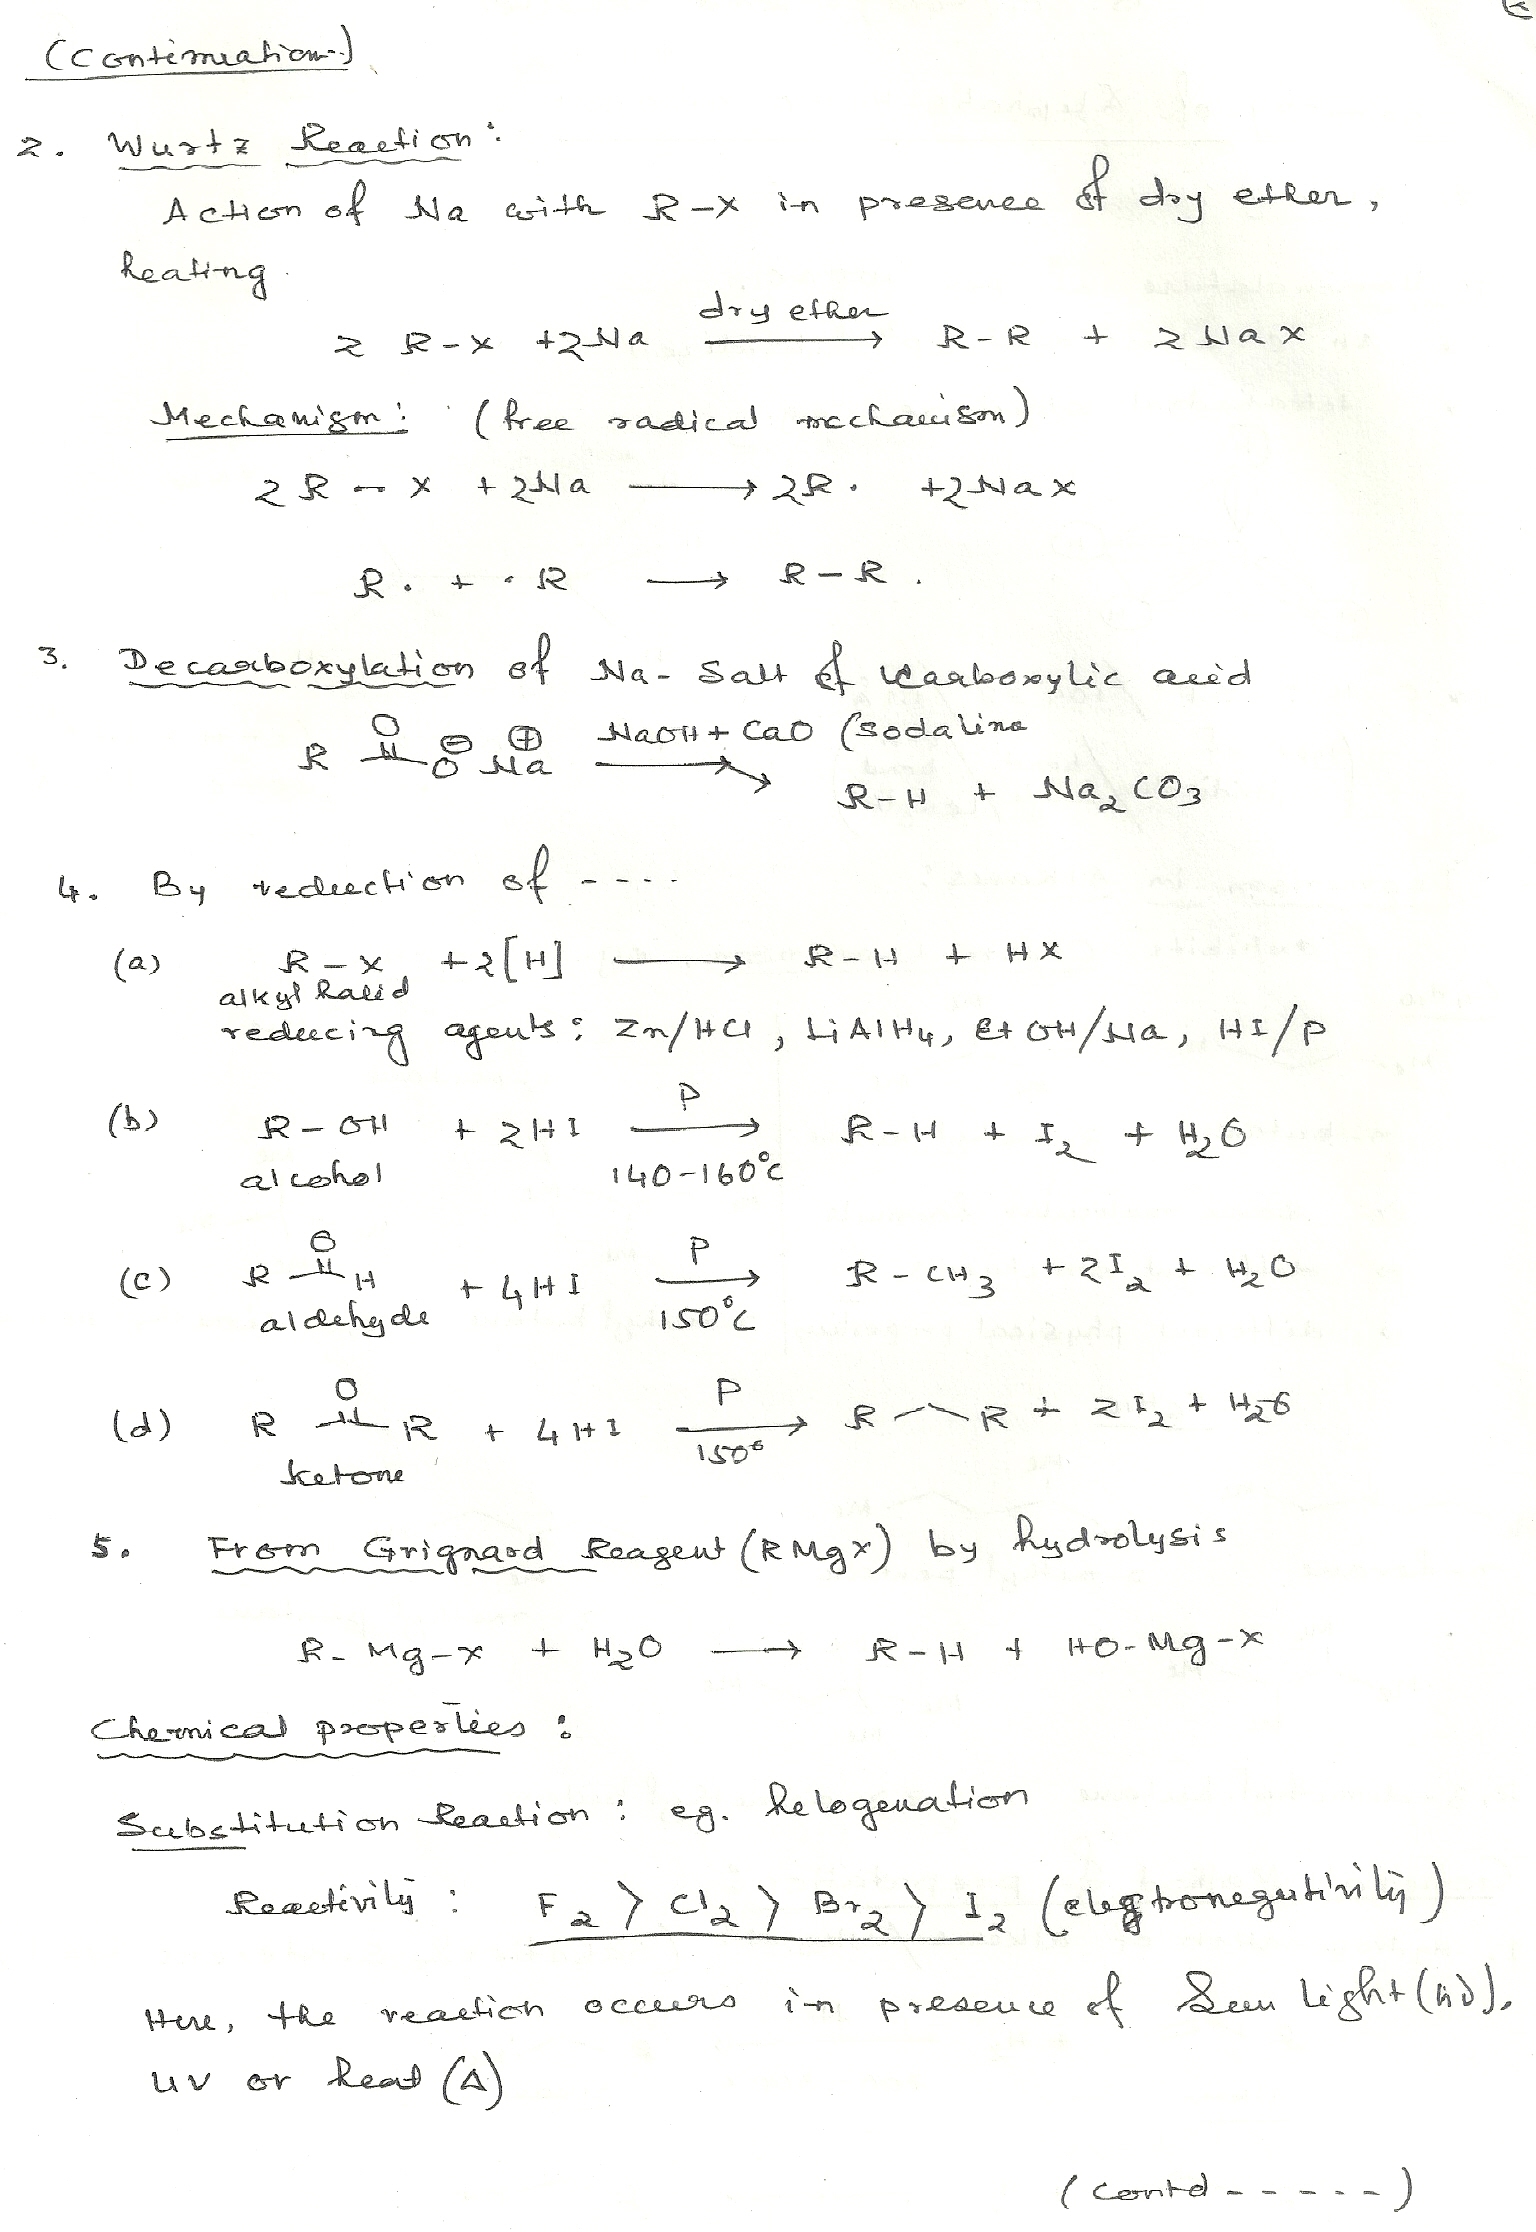 (Continuation..)
2. Wurtz Reaction:
Action of Na with R-X in presence of dry ether,
heating.
2 R-X +2Na dry ether → R-R + 2NaX
Mechanism: (free radical mechanism)
2R-X +2Na → 2R· +2NaX
R· + ·R → R-R.
3. Decarboxylation of Na-Salt of Carboxylic acid
R O O⊖ Na⊕ NaOH + CaO (sodalime →
R-H + Na2CO3
4. By reduction of ----
(a) R-X +2[H] → R-H + HX
alkyl halid
reducing agents: Zn/HCl, LiAlH4, EtOH/Na, HI/P
(b) R-OH + 2HI P → R-H + I2 + H2O
alcohol 140-160°C
(c) R O H + 4HI P → R-CH3 + 2I2 + H2O
aldehyde 150°C
(d) R O R + 4HI P → R R + 2I2 + H2O
ketone 150°
5. From Grignard Reagent (RMgX) by hydrolysis
R-Mg-X + H2O → R-H + HO-Mg-X
Chemical properties:
Substitution Reaction: eg. helogenation
Reactivity: F2 > Cl2 > Br2 > I2 (electronegutivity)
Here, the reaction occurs in presence of Sun light (hν),
UV or heat (Δ)
(contd-----)